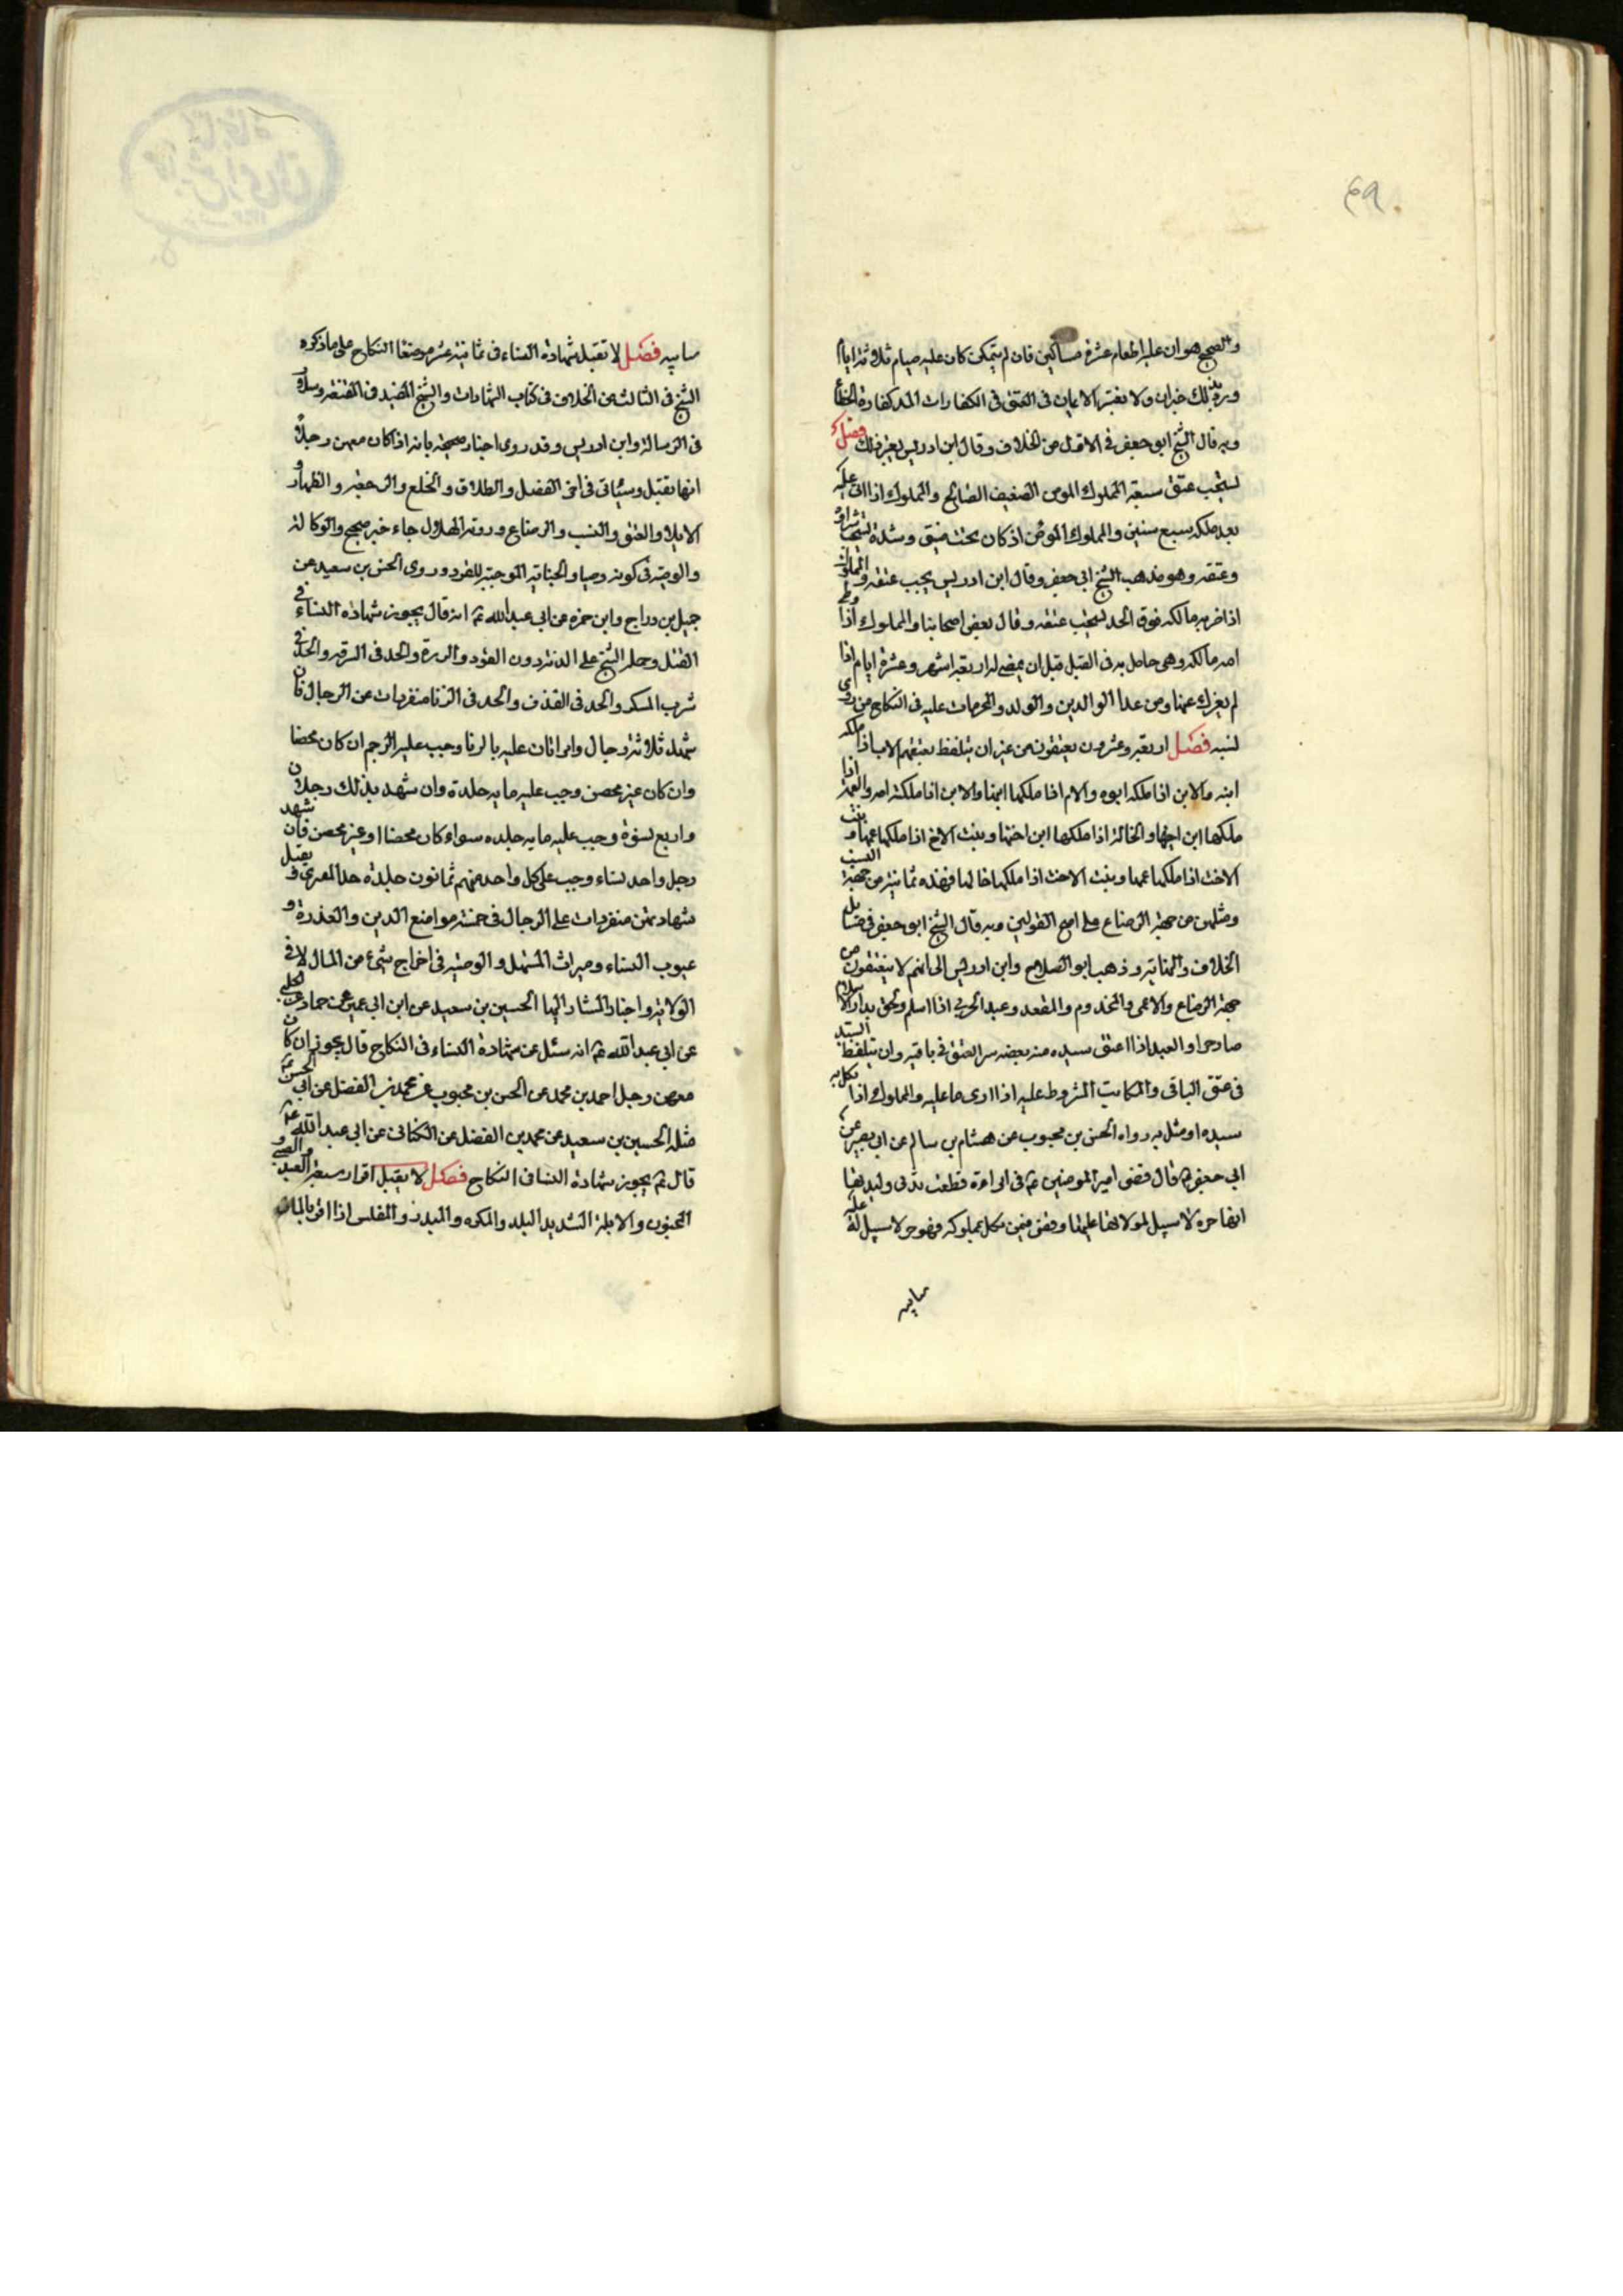 ۶۹
والصحيح هو ان عليه اطعام عشرة مساكين فان لم يتمكن كان عليه صيام ثلاثة ايام
وبذلك خبران ولا يعتبر الايمان في العتق في الكفارات الا في كفارة الخطأ
وبه قال الشيخ ابو جعفر في الاول من الخلاف وقال ابن ادريس يعتبر ذلك فصل
يستحب عتق سبعة المملوك المومن الضعيف الصالح والمملوك اذا اتى عليه
بعد ملكه سبع سنين والمملوك المومن اذ كان تحت ضيق وشدة يستحب شراؤه
وعتقه وهو مذهب الشيخ ابي جعفر وقال ابن ادريس يجب عتقه والمملوك
اذا ضربه مالكه فوق الحد يستحب عتقه وقال بعض اصحابنا والمملوك اذا وطئ
امه مالكه وهي حامل به في القبل قبل ان يمضي له اربعة اشهر وعشرة ايام اذا
لم يعزل عنها ومن عدا الوالدين والولد والمحرمات عليه في النكاح من ذوي
نسبه فصل اربعة وعشرون يعتقون من غير ان يتلفظ بعتقهم الاب اذا ملكه
ابنه والابن اذا ملكه ابوه والام اذا ملكها ابنها والابن اذا ملكته امه والعمة اذا
ملكها ابن اخيها والخالة اذا ملكها ابن اختها وبنت الاخ اذا ملكها عمها وبنت
الاخت اذا ملكها عمها وبنت الاخت اذا ملكها خالها فهذه ثمانية من جهة النسب
ومثلهن من جهة الرضاع على اصح القولين وبه قال الشيخ ابو جعفر في مسايل
الخلاف والنهاية وذهب ابو الصلاح وابن ادريس الى انهم لا ينعتقون من
جهة الرضاع والاعمى والمجذوم والمقعد وعبد الحربي اذا اسلم ولحق بدار الاسلام
صار حرا والعبد اذا اعتق سيده منه بعضه سرا العتق في باقيه وان يتلفظ السيد
في عتق الباقي والمكاتب المشروط عليه اذا ادى ما عليه والمملوك اذا نكل به
سيده او مثل به رواه الحسن بن محبوب عن هشام بن سالم عن ابي بصير عن
ابي جعفر ع قال قضى امير المومنين ع في امراة قطعت ثدي وليدتها
انها حرة لا سبيل لمولاتها عليها وقضى فيمن نكل بمملوكه فهو حر لا سبيل له عليه
سايبه
سايبه فصل لا تقبل شهادة النساء في ثمانية عشر موضعا النكاح على ما ذكره
الشيخ في الثالث من الخلاف في كتاب الشهادات والشيخ المفيد في المقنعة وسلار
في الرسالة وابن ادريس وقد روى اخبار صحيحة بانه اذا كان معهن رجل
انها تقبل وسياتي في اخر الفصل والطلاق والخلع والرجعة والظهار و
الايلاء والعتق والنسب والرضاع وروية الهلال جاء خبر صحيح والوكالة
والوصية في كونه وصيا والجناية الموجبة للقود وروى الحسن بن سعيد عن
جميل بن دراج وابن حمزه عن ابي عبد الله ع انه قال يجوز شهادة النساء في
القتل وحمله الشيخ على الدية دون القود والردة والحد في السرقة والحد في
شرب المسكر والحد في القذف والحد في الزنا منفردات عن الرجال فان
شهد ثلاثة رجال وامراتان عليه بالزنا وجب عليه الرجم ان كان محصنا
وان كان غير محصن وجب عليه مايه جلدة وان شهد بذلك رجلان
واربع نسوة وجب عليه مايه جلده سواء كان محصنا او غير محصن فان شهد
رجل واحد نساء وجب على كل واحد منهم ثمانون جلدة حد المفتري و يقبل
شهادتهن منفردات على الرجال في خمسة مواضع الدين والعذرة و
عيوب النساء وميراث المستهل والوصية في اخراج شيء من المال لا في
الولاية واخبار المشار اليها الحسين بن سعيد عن ابن ابي عمير عن حماد عن الحلبي
عن ابي عبد الله ع انه سئل عن شهادة النساء في النكاح قال يجوز ان كان
معهن رجل احمد بن محمد عن الحسن بن محبوب عن محمد بن الفضل عن ابي الحسن ع
مثله الحسين بن سعيد عن محمد بن الفضل عن الكناني عن ابي عبد الله ع
قال ع يجوز شهادة النسا في النكاح فصل لا يقبل اقرار سبعة العبد والصبي و
المجنون والابله الشديد البله والمكره والمبذر والمفلس اذا اقر بالمال